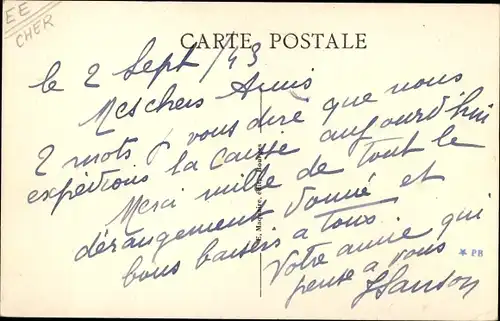 EE
CHER
CARTE POSTALE
le 2 Sept/43
Mes chers Amis
2 mots pr vous dire que nous
expédions la caisse aujourd'hui
Merci mille de tout le
dérangement donné et
bons baisers à tous
Votre amie qui
pense à vous
PB